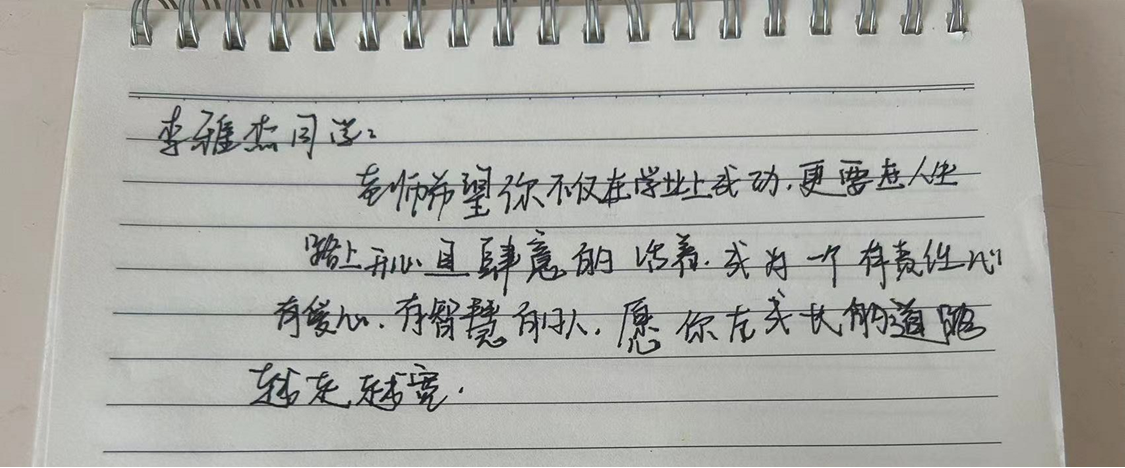 李雅杰同学:
老师希望你不仅在学业上成功,更要在人生
路上开心且肆意的活着,成为一个有责任心
有爱心、有智慧的人,愿你在成长的道路
越走越宽.